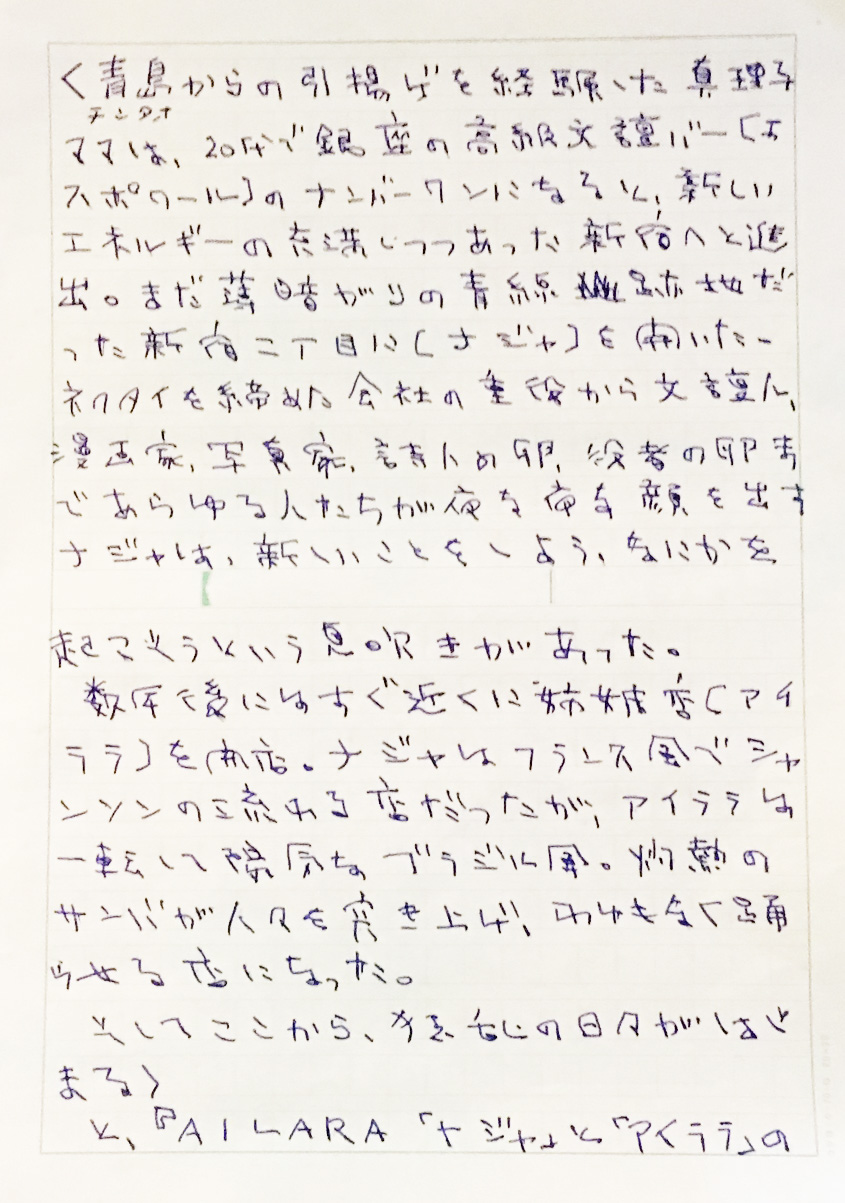 〈青島からの引揚げを経験した真理子
チンタオ
ママは、20代で銀座の高級文壇バー〔エ
スポワール〕のナンバーワンになると、新しい
エネルギーの充満しつつあった新宿へと進
出。まだ薄暗がりの青線跡地だ
った新宿二丁目に〔ナジャ〕を開いた。
ネクタイを締めた会社の重役から文壇人、
漫画家、写真家、詩人の卵、役者の卵ま
であらゆる人たちが夜な夜な顔を出す
ナジャは、新しいことをしよう、なにかを
起こそうという息吹きがあった。
数年後にはすぐ近くに姉妹店〔アイ
ララ〕を開店。ナジャはフランス風でシャ
ンソンの流れる店だったが、アイララは
一転して陽気なブラジル風。灼熱の
サンバが人々を突き上げ、わけもなく踊
らせる店になった。
そしてここから、狂乱の日々がはじ
まる〉
と、『AILARA 「ナジャ」と「アイララ」の